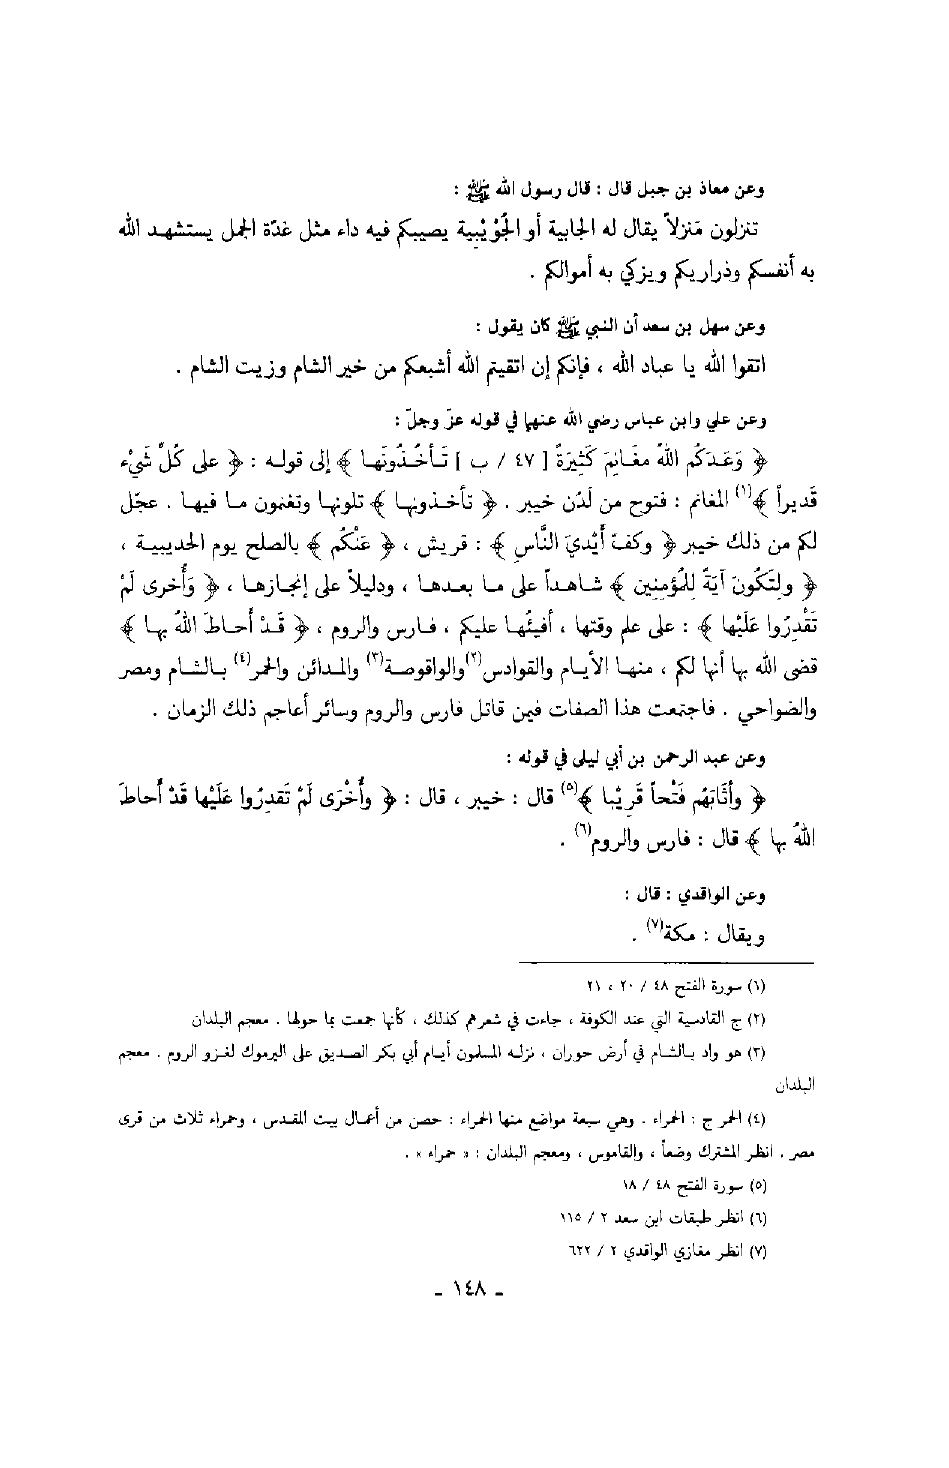 وعن معاذ بن جبل قال : قال رسول الله ﷺ :
تنزلون مَنزلاً يقال له الجابية أو الجُوَيْبِية يصيبكم فيه داء مثل غدّة الجمل يستشهد الله
به أنفسكم وذراريكم ويزكي به أموالكم .
وعن سهل بن سعد أن النبي ﷺ كان يقول :
اتقوا الله يا عباد الله ، فإنكم إن اتقيتم الله أشبعكم من خير الشام وزيت الشام .
وعن علي وابن عباس رضي الله عنهما في قوله عزّ وجلّ :
﴿ وَعَدَكُم اللهُ مغَانِمَ كَثِيرَةً [ ٤٧ / ب ] تَأخُذُونَها ﴾ إلى قوله : ﴿ على كُلِّ شَيْء
قَديراً ﴾(١) المغانم : فتوح من لَدُن خيبر . ﴿ تأخذونها ﴾ تلونها وتغنمون ما فيها . عجّل
لكم من ذلك خيبر ﴿ وكفّ أَيْديَ النَّاسِ ﴾ : قريش ، ﴿ عَنْكُم ﴾ بالصلح يوم الحديبية ،
﴿ ولتَكُونَ آيَةً لِلْمُؤمِنِين ﴾ شاهداً على ما بعدها ، ودليلاً على إنجازها ، ﴿ وَأُخرى لَمْ
تَقْدِرُوا عَلَيْها ﴾ : على علم وقتها ، أفيئُها عليكم ، فارس والروم ، ﴿ قَدْ أَحاطَ اللهُ بها ﴾
قضى الله بها أنها لكم ، منها الأيام والقوادس(٢) والواقوصة(٣) والمدائن والحمر(٤) بالشام ومصر
والضواحي . فاجتمعت هذا الصفات فيمن قاتل فارس والروم وسائر أعاجم ذلك الزمان .
وعن عبد الرحمن بن أبي ليلى في قوله :
﴿ وأَثَابَهُم فَتْحاً قَرِيْبا ﴾(٥) قال : خيبر ، قال : ﴿ وأُخْرَى لَمْ تَقدِرُوا عَلَيْها قَدْ أحاطَ
اللهُ بها ﴾ قال : فارس والروم(٦) .
وعن الواقدي : قال :
ويقال : مكة(٧) .
(١) سورة الفتح ٤٨ / ٢٠ ، ٢١
(٢) ج القادسية التي عند الكوفة ، جاءت في شعرهم كذلك ، كأنها جمعت بما حولها . معجم البلدان
(٣) هو واد بالشام في أرض حوران ، نزله المسلمون أيام أبي بكر الصديق على اليرموك لغزو الروم . معجم
البلدان
(٤) الحمر ج : الحمراء . وهي سبعة مواضع منها الحمراء : حصن من أعمال بيت المقدس ، وحمراء ثلاث من قرى
مصر . انظر المشترك وضعاً ، والقاموس ، ومعجم البلدان : « حمراء » .
(٥) سورة الفتح ٤٨ / ١٨
(٦) انظر طبقات ابن سعد ٢ / ١١٥
(٧) انظر مغازي الواقدي ٢ / ٦٢٢
- ١٤٨ -